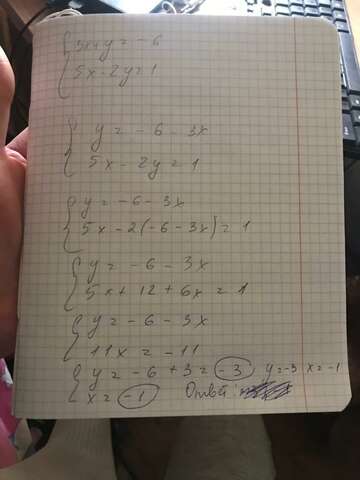 3x+y = -6
5x-2y=1
y = -6-3x
5x-2y=1
y = -6-3x
5x-2(-6-3x)=1
y = -6-3x
5x+12+6x=1
y = -6-3x
11x = -11
y = -6+3=-3 y=-3 x=-1
x = -1 Ответ: